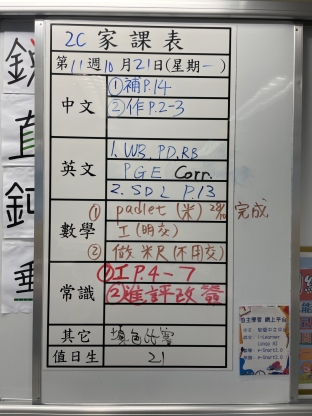 2C 家課表
第11週10月21日(星期一)
中文
①補P.14
②作P.2-3
英文
1. WB, PD, RB
PGE Corr.
2. SDL P.13
數學
① padlet (米) 完成
工(明交)
② 做米尺(不用交)
常識
①工P.4-7
②進評改簽
其它
填色比賽
值日生
21
直
自主學習 網上平台